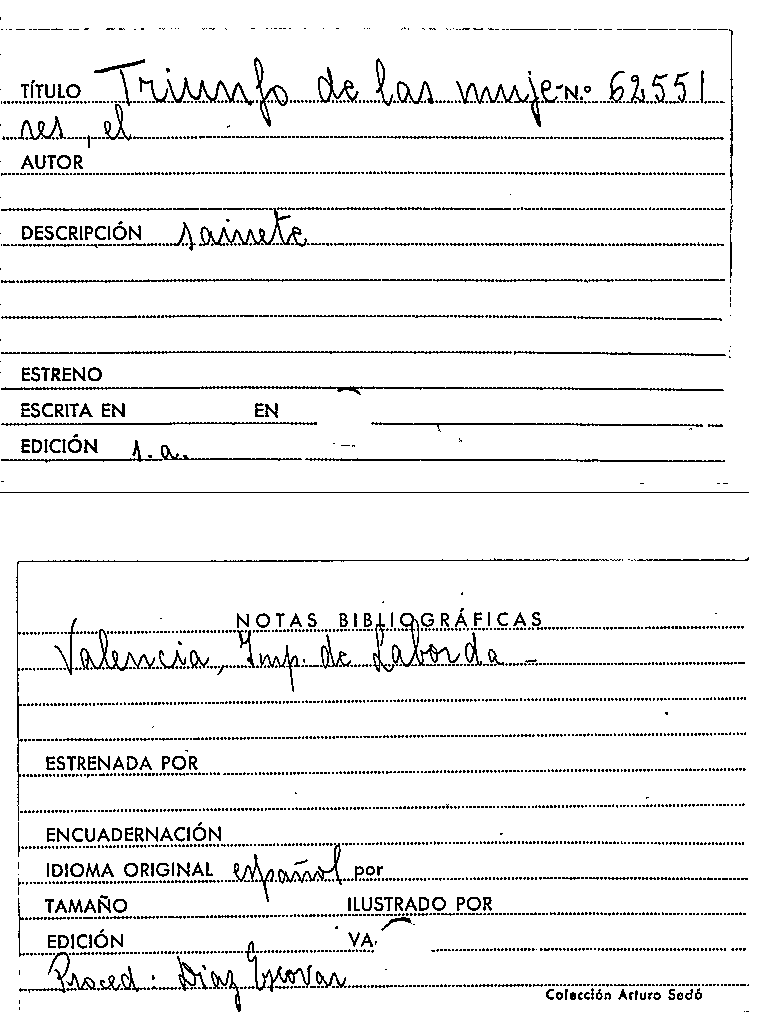 TÍTULO Triunfo de las muje- N.º 62551
res, el
AUTOR
DESCRIPCIÓN sainete
ESTRENO
ESCRITA EN EN
EDICIÓN s.a.
NOTAS BIBLIOGRÁFICAS
Valencia, Imp. de Laborda -
ESTRENADA POR
ENCUADERNACIÓN
IDIOMA ORIGINAL español por
TAMAÑO ILUSTRADO POR
EDICIÓN VA
Proced: Díaz Escovar
Colección Arturo Sedó